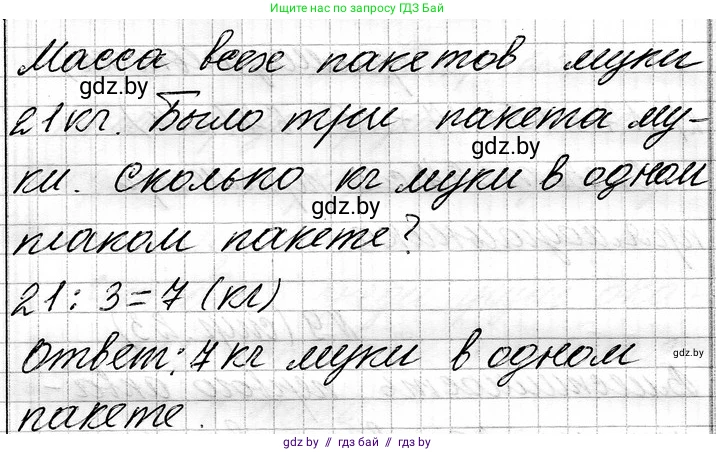 Ищите нас по запросу ГДЗ Бай
Масса всех пакетов муки
gdz.by
21 кг. Было три пакета му-
gdz.by
ки. Сколько кг муки в одном
gdz.by
плаком пакете?
21 : 3 = 7 (кг)
Ответ: 7 кг муки в одном
gdz.by
пакете.
gdz.by // гдз бай // gdz.by